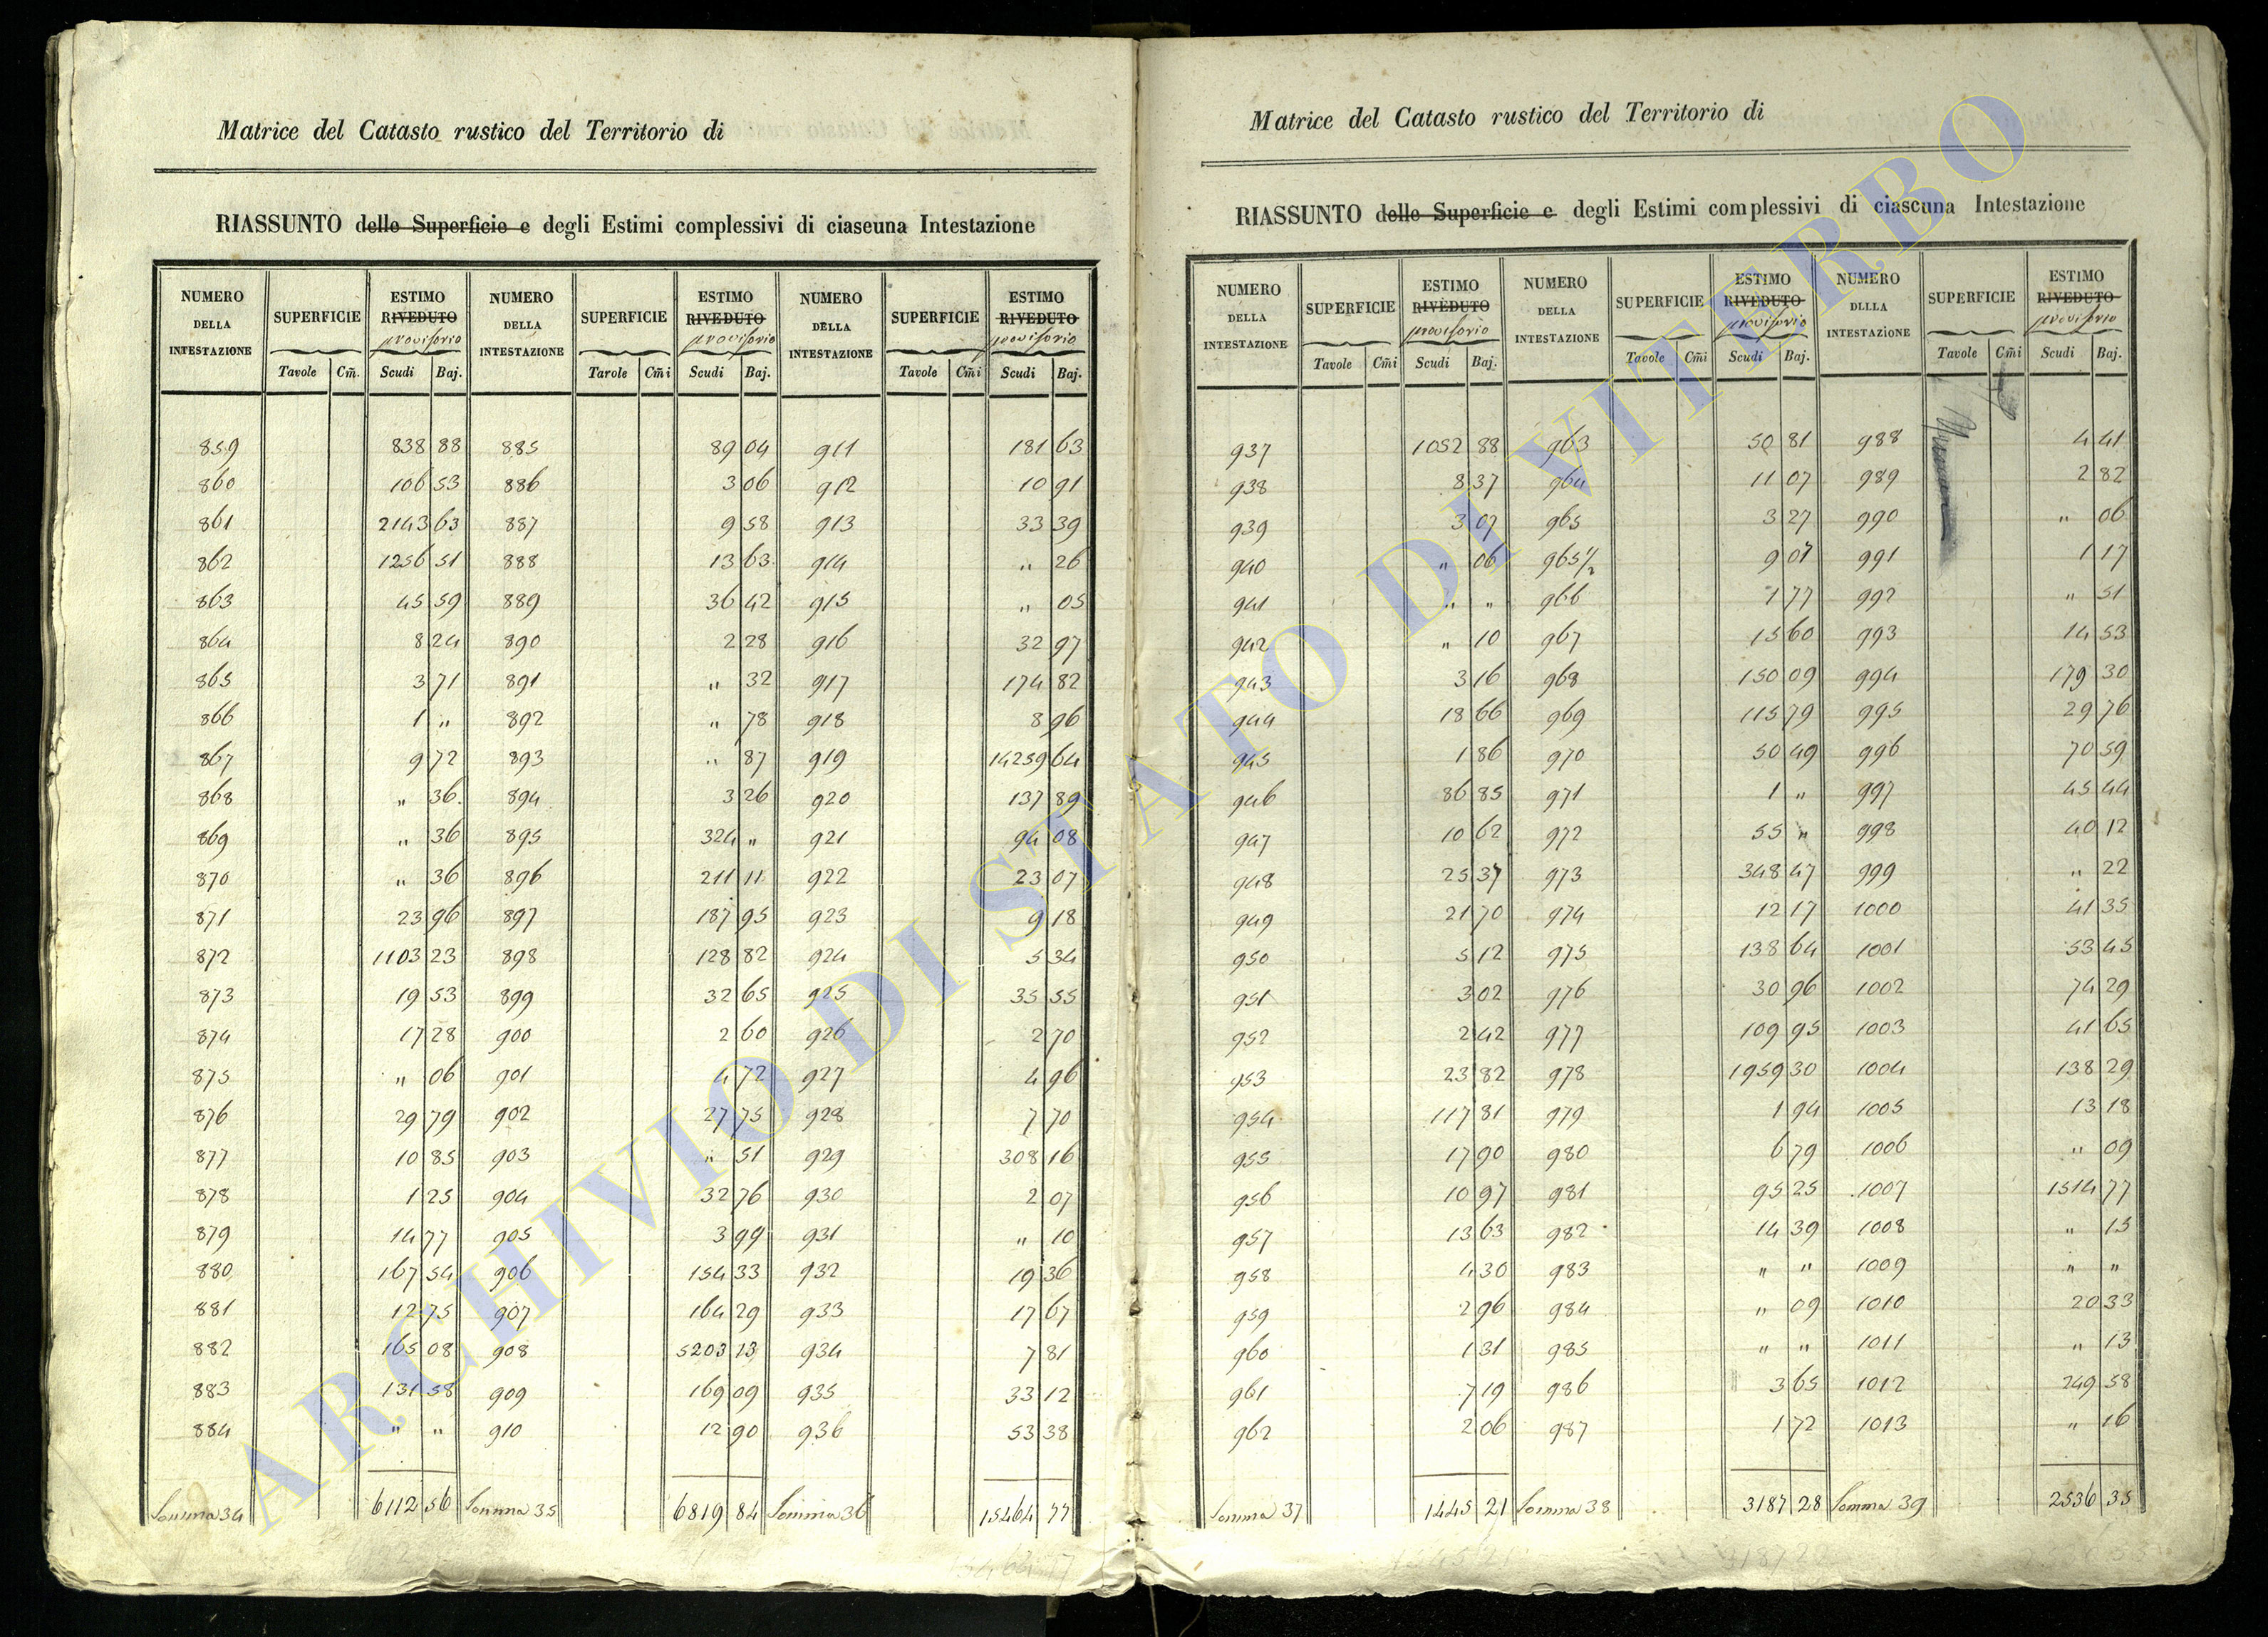 Matrice del Catasto rustico del Territorio di
RIASSUNTO delle Superficie e degli Estimi complessivi di ciascuna Intestazione
NUMERO DELLA INTESTAZIONE SUPERFICIE ESTIMO RIVEDUTO provisorio NUMERO DELLA INTESTAZIONE SUPERFICIE ESTIMO RIVEDUTO provisorio NUMERO DELLA INTESTAZIONE SUPERFICIE ESTIMO RIVEDUTO provisorio
Tavole Cm̃. Scudi Baj. Tavole Cm̃i Scudi Baj. Tavole Cm̃i Scudi Baj.
859 838 88 885 89 04 911 181 63
860 106 53 886 3 06 912 10 91
861 2143 63 887 9 58 913 33 39
862 1256 51 888 13 63 914 " 26
863 45 59 889 36 42 915 " 05
864 8 24 890 2 28 916 32 97
865 3 71 891 " 32 917 174 82
866 1 " 892 " 78 918 8 96
867 9 72 893 " 87 919 14259 64
868 " 36 894 3 26 920 137 89
869 " 36 895 324 " 921 94 08
870 " 36 896 211 11 922 23 07
871 23 96 897 187 95 923 9 18
872 1103 23 898 128 82 924 5 34
873 19 53 899 32 65 925 35 55
874 17 28 900 2 60 926 2 70
875 " 06 901 4 72 927 4 96
876 29 79 902 27 75 928 7 70
877 10 85 903 " 51 929 308 16
878 1 25 904 32 76 930 2 07
879 14 77 905 3 99 931 " 10
880 167 54 906 154 33 932 19 36
881 12 75 907 164 29 933 17 67
882 165 08 908 5203 13 934 7 81
883 131 58 909 169 09 935 33 12
884 " " 910 12 90 936 53 38
Somma 34 6112 56 Somma 35 6819 84 Somma 36 15464 77
Matrice del Catasto rustico del Territorio di
RIASSUNTO delle Superficie e degli Estimi complessivi di ciascuna Intestazione
NUMERO DELLA INTESTAZIONE SUPERFICIE ESTIMO RIVEDUTO provisorio NUMERO DELLA INTESTAZIONE SUPERFICIE ESTIMO RIVEDUTO provisorio NUMERO DLLLA INTESTAZIONE SUPERFICIE ESTIMO RIVEDUTO provisorio
Tavole Cm̃i Scudi Baj. Tavole Cm̃i Scudi Baj. Tavole Cm̃i Scudi Baj.
937 1052 88 963 50 81 988 4 41
938 8 37 964 11 07 989 2 82
939 3 07 965 3 27 990 " 06
940 " 06 965 1/2 9 07 991 1 17
941 " " 966 1 77 992 " 51
942 " 10 967 15 60 993 14 53
943 3 16 968 150 09 994 179 30
944 18 66 969 115 79 995 29 76
945 1 86 970 50 49 996 70 59
946 86 85 971 1 " 997 45 44
947 10 62 972 55 " 998 40 12
948 25 37 973 348 47 999 " 22
949 21 70 974 12 17 1000 41 35
950 5 12 975 138 64 1001 53 45
951 3 02 976 30 96 1002 74 29
952 2 42 977 109 95 1003 41 65
953 23 82 978 1959 30 1004 138 29
954 117 81 979 1 94 1005 13 18
955 17 90 980 6 79 1006 " 09
956 10 97 981 95 25 1007 1514 77
957 13 63 982 14 39 1008 " 15
958 4 30 983 " " 1009 " "
959 2 96 984 " 09 1010 20 33
960 1 31 985 " " 1011 " 13
961 7 19 986 3 65 1012 249 58
962 2 06 987 1 72 1013 " 16
Somma 37 1445 21 Somma 38 3187 28 Somma 39 2536 35
ARCHIVIO DI STATO DI VITERBO